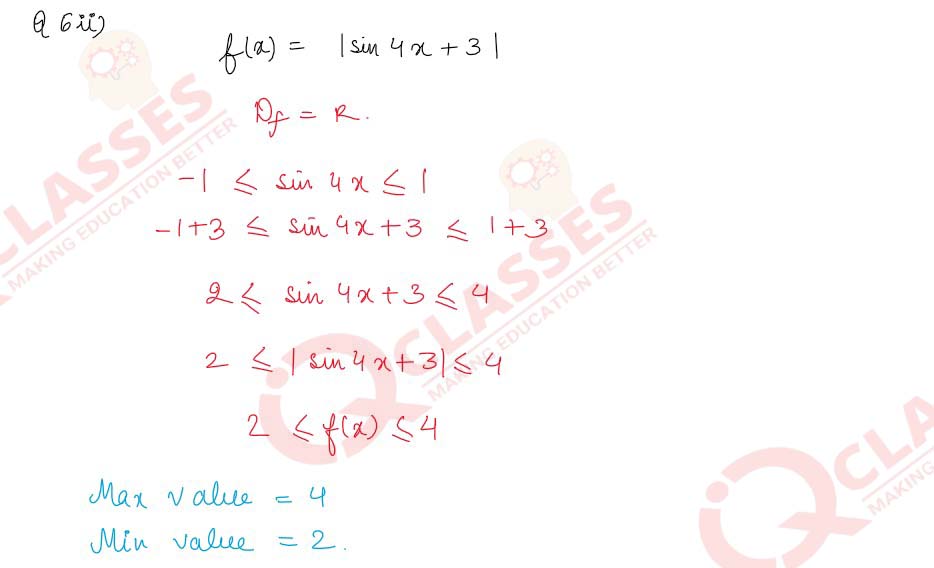 Q 6 ii)
f(x) = |sin 4x + 3|
Df = R.
-1 ≤ sin 4x ≤ 1
-1+3 ≤ sin 4x+3 ≤ 1+3
2 ≤ sin 4x+3 ≤ 4
2 ≤ |sin 4x+3| ≤ 4
2 ≤ f(x) ≤ 4
Max value = 4
Min value = 2.
CLASSES
MAKING EDUCATION BETTER
IQ CLASSES
MAKING EDUCATION BETTER
IQ CLA
MAKING